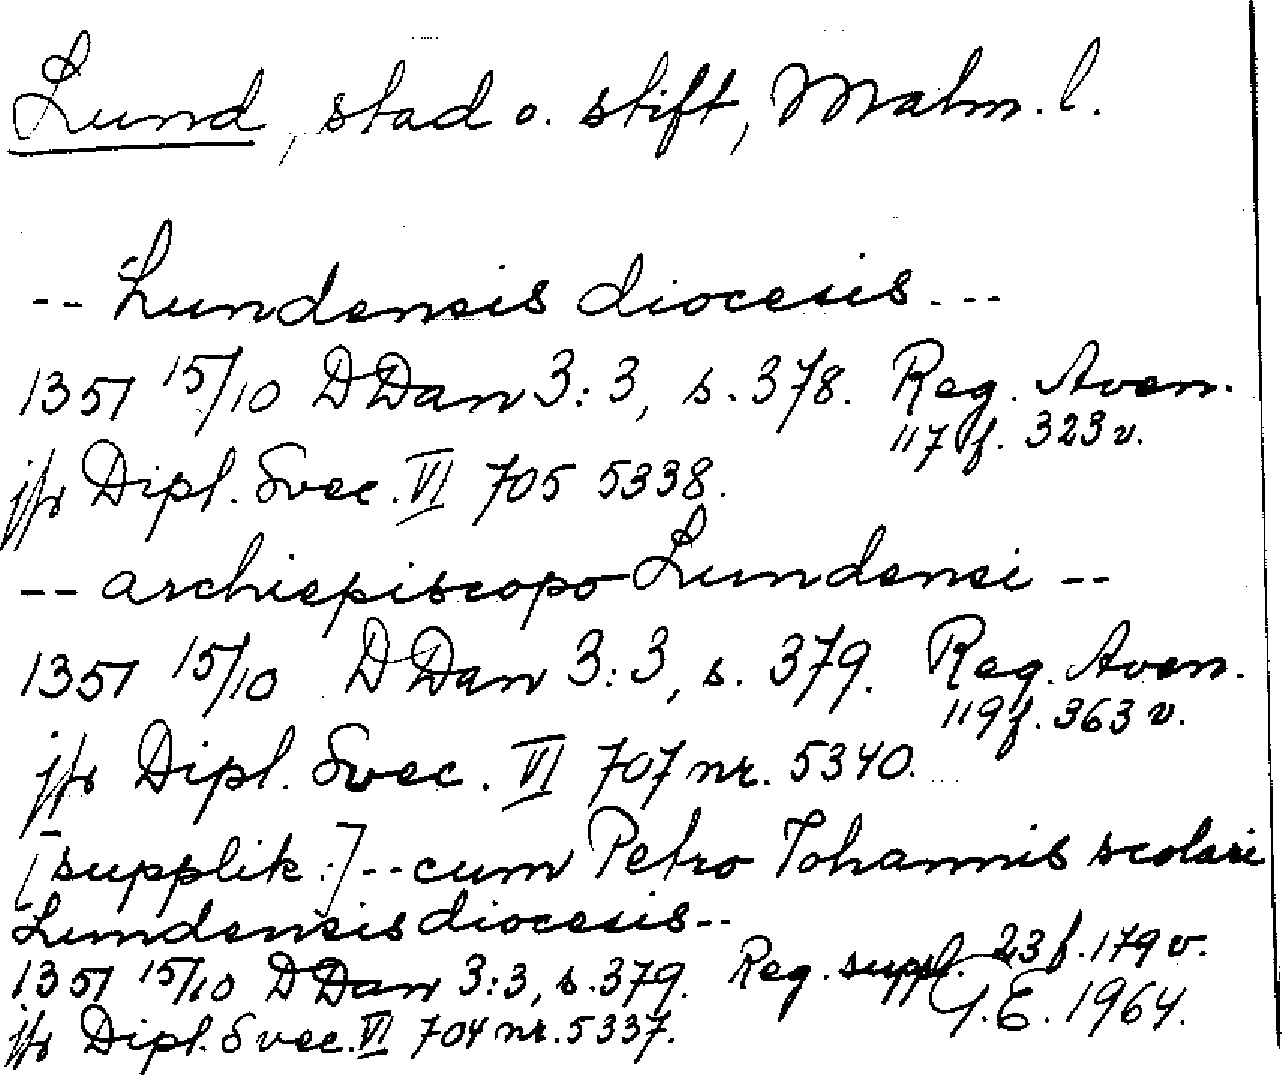 Lund, stad o. stift, Malm. l.
-- Lundensis diocesis ---
1351 15/10 D Dan 3:3, s. 378. Reg. Aven.
117 f. 323 v.
jfr Dipl. Svec. VI 705 5338.
-- archiepiscopo Lundensi --
1351 15/10 D Dan 3:3, s. 379. Reg. Aven.
119 f. 363 v.
jfr Dipl. Svec. VI 707 nr. 5340.
[supplik:] -- cum Petro Johannis scolari
Lundensis diocesis --
1351 15/10 D Dan 3:3, s. 379. Reg. suppl. 23 f. 179 v.
jfr Dipl. Svec. VI 704 nr. 5337. G.E. 1964.